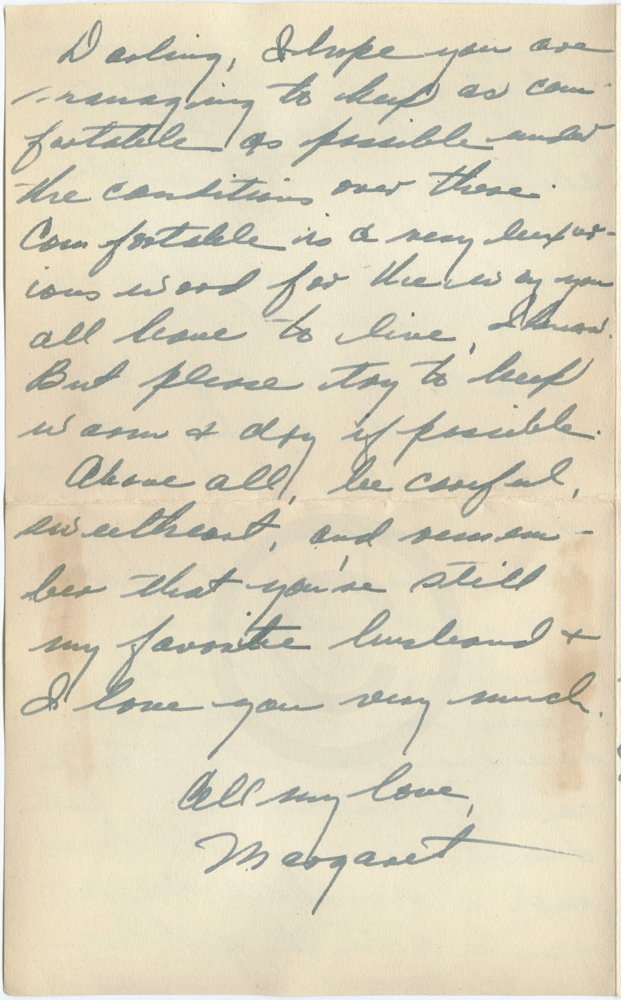 Darling, I hope you are
managing to keep as com-
fortable as possible under
the conditions over there.
Comfortable is a very luxur-
ious word for the way you
all have to live, I know.
But please try to keep
warm & dry if possible.
Above all, be careful,
sweetheart, and remem-
ber that you're still
my favorite husband &
I love you very much.
All my love,
Margaret